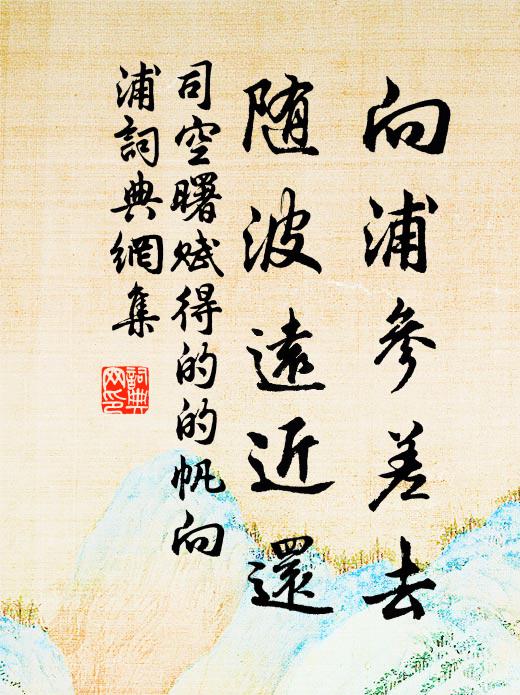 向浦參差去
随波遠近還
司空曙賦得的的帆向
浦詞典網集
詞典
网印